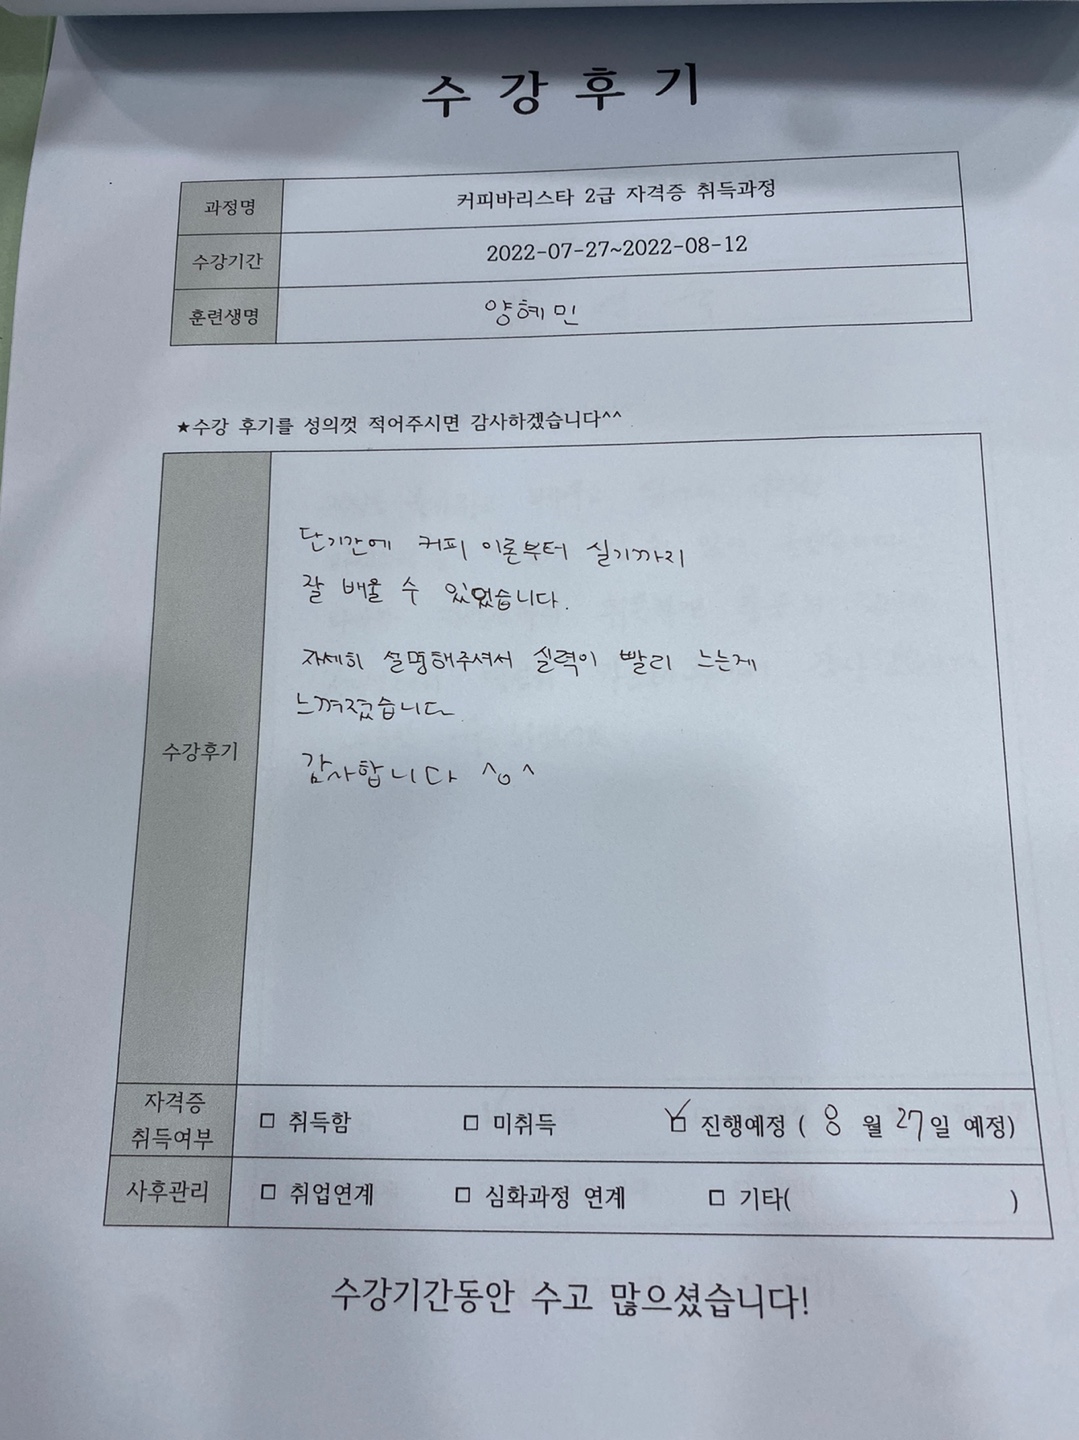 수 강 후 기
과정명 커피바리스타 2급 자격증 취득과정
수강기간 2022-07-27~2022-08-12
훈련생명 양혜민
★수강 후기를 성의껏 적어주시면 감사하겠습니다^^
단기간에 커피 이론부터 실기까지
잘 배울 수 있었습니다.
자세히 설명해주셔서 실력이 빨리 느는게
느껴졌습니다
수강후기
감사합니다 ^o^
자격증 취득여부 □ 취득함 □ 미취득 ☑ 진행예정 ( 8 월 27일 예정)
사후관리 □ 취업연계 □ 심화과정 연계 □ 기타( )
수강기간동안 수고 많으셨습니다!